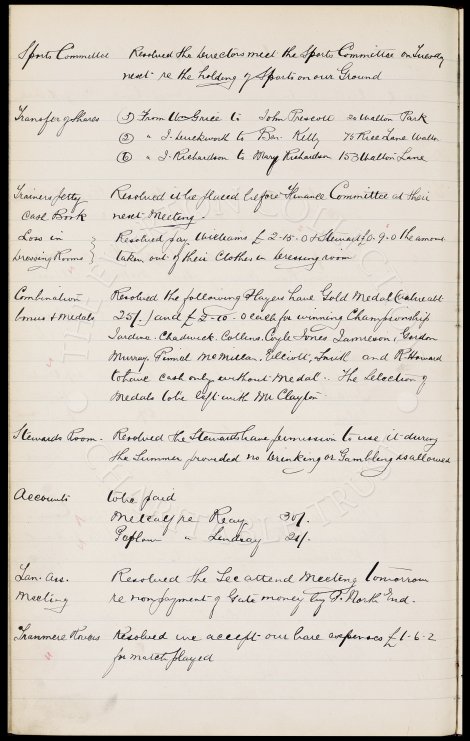 Sports Committee Resolved the Directors meet the Sports Committee on Tuesday
next re the holding of Sports on our Ground
Transfer of Shares (5) From Wm Grice to John Prescott 20 Walton Park
(5) " J. Duckworth to Ben. Kelly 76 Rice Lane Walton
(6) " J. Richardson to Mary Richardson 153 Walton Lane
Trainers petty Resolved it be placed before Finance Committee at their
Cash Book next Meeting.
Loss in } Resolved pay Williams £2-15-0 & Steward £0-9-0 the amount
Dressing Rooms } taken out of their Clothes in Dressing room
Combination Resolved the following Players have Gold Medal (value abt
bonus & Medals 25/-) and £2-10-0 each for winning Championship
Jardine. Chadwick. Collins. Coyle Jones Jamieson, Gordon
Murray. Pinnel McMillan. Elliott, Smith and R Howard
to have cash only without Medal. The Selection of
Medals to be left with Mr Clayton
Stewards Room. Resolved the Stewards have permission to use it during
the Summer provided no Drinking or Gambling is allowed
Accounts to be paid
Metcalfe Reay 30/-
" Lindsay 21/-
Lan. Ass. Resolved the Sec attend Meeting tomorrow
Meeting re nonpayment of Gate money by P. North End.
Tranmere Rovers Resolved we accept our bare expenses £1-6-2
for match played